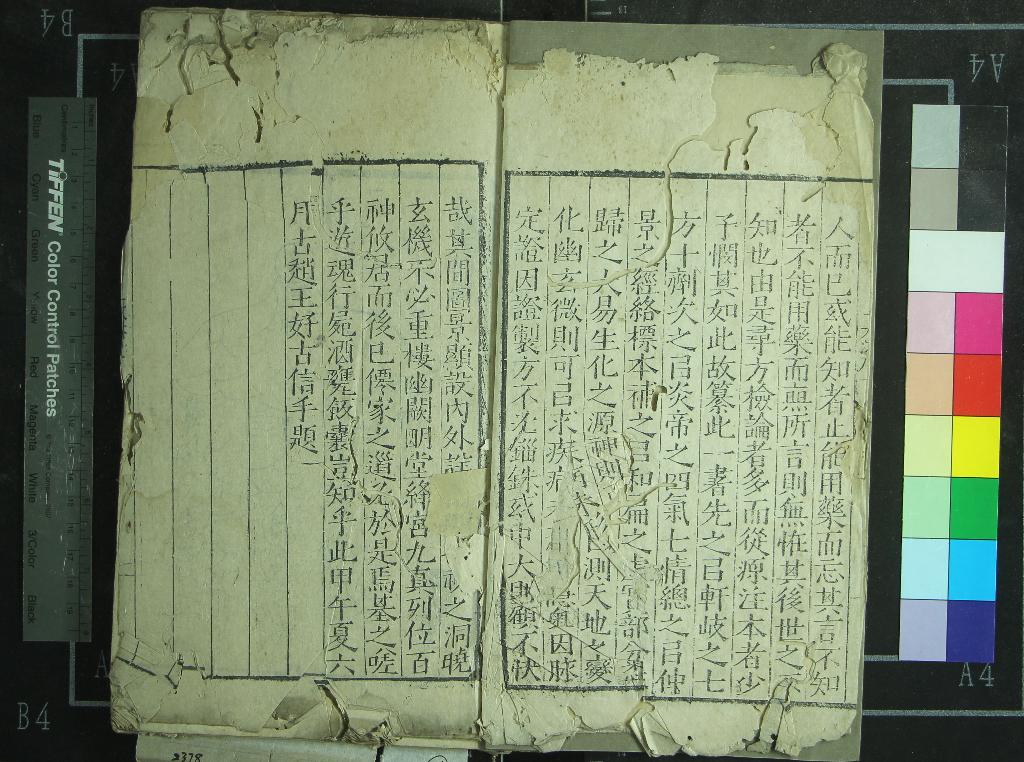 人而已或能知者止能用藥而忘其言不知
者不能用藥而無所言則無恠其後世之不
知也由是尋方檢論者多而從源注本者少
予憫其如此故纂此一書先之㠯軒岐之七
方十劑次之㠯炎帝之四氣七情總之㠯仲
景之經絡標本補之㠯和扁之虛實部分
歸之大易生化之源神與 測天地之變
化幽玄微則可㠯求疾病之 因脉
定證因證製方不差錙銖或中大興顧不快
哉其間圖景顯設內外 之洞曉
玄機不必重樓幽闕明堂絳宮九真列位百
神攸居而後已僊家之道 於是焉基之嗟
乎遊魂行屍酒甕飯囊豈知乎此甲午夏六
月古趙王好古信手題
TIFFEN Color Control Patches
Blue Cyan Green Yellow Red Magenta White 3/Color Black
B4
A4
A4
B4
A4
2378